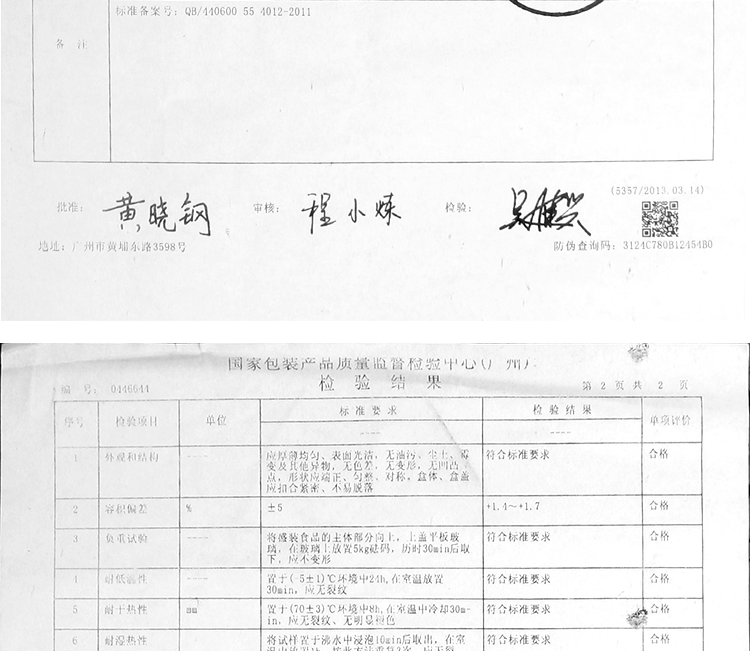 标准备案号: QB/440600 55 4012-2011
备 注
(5357/2013.03.14)
批准: 黄晓钢 审核: 程小炼 检验:
地址: 广州市黄埔东路3598号 防伪查询码: 3124C780B12454B0
国家包装产品质量监督检验中心(广州)
检 验 结 果
编 号: 0446644 第 2 页 共 2 页
序号 检验项目 单位 标 准 要 求 检 验 结 果 单项评价
---- ----
1 外观和结构 ---- 应厚薄均匀、表面光洁, 无油污、尘土、霉 符合标准要求 合格
变及其他异物, 无色差, 无变形, 无凹凸
点, 形状应端正、匀整、对称, 盒体、盒盖
应扣合紧密、不易脱落
2 容积偏差 % ±5 +1.4~+1.7 合格
3 负重试验 ---- 将盛装食品的主体部分向上, 上盖平板玻 符合标准要求 合格
璃, 在玻璃上放置5kg砝码, 历时30min后取
下, 应不变形
4 耐低温性 ---- 置于(-5±1)℃环境中24h, 在室温放置 符合标准要求 合格
30min, 应无裂纹
5 耐干热性 mm 置于(70±3)℃环境中8h, 在室温中冷却30m- 符合标准要求 合格
in, 应无裂纹、无明显褪色
6 耐湿热性 将试样置于沸水中浸泡10min后取出, 在室 符合标准要求 合格